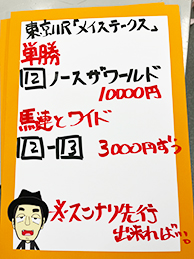 東京11R「メイステークス」
単勝
12 ノースザワールド
10000円
馬連とワイド
12-13 3000円ずつ
※スンナリ先行
出来れば…